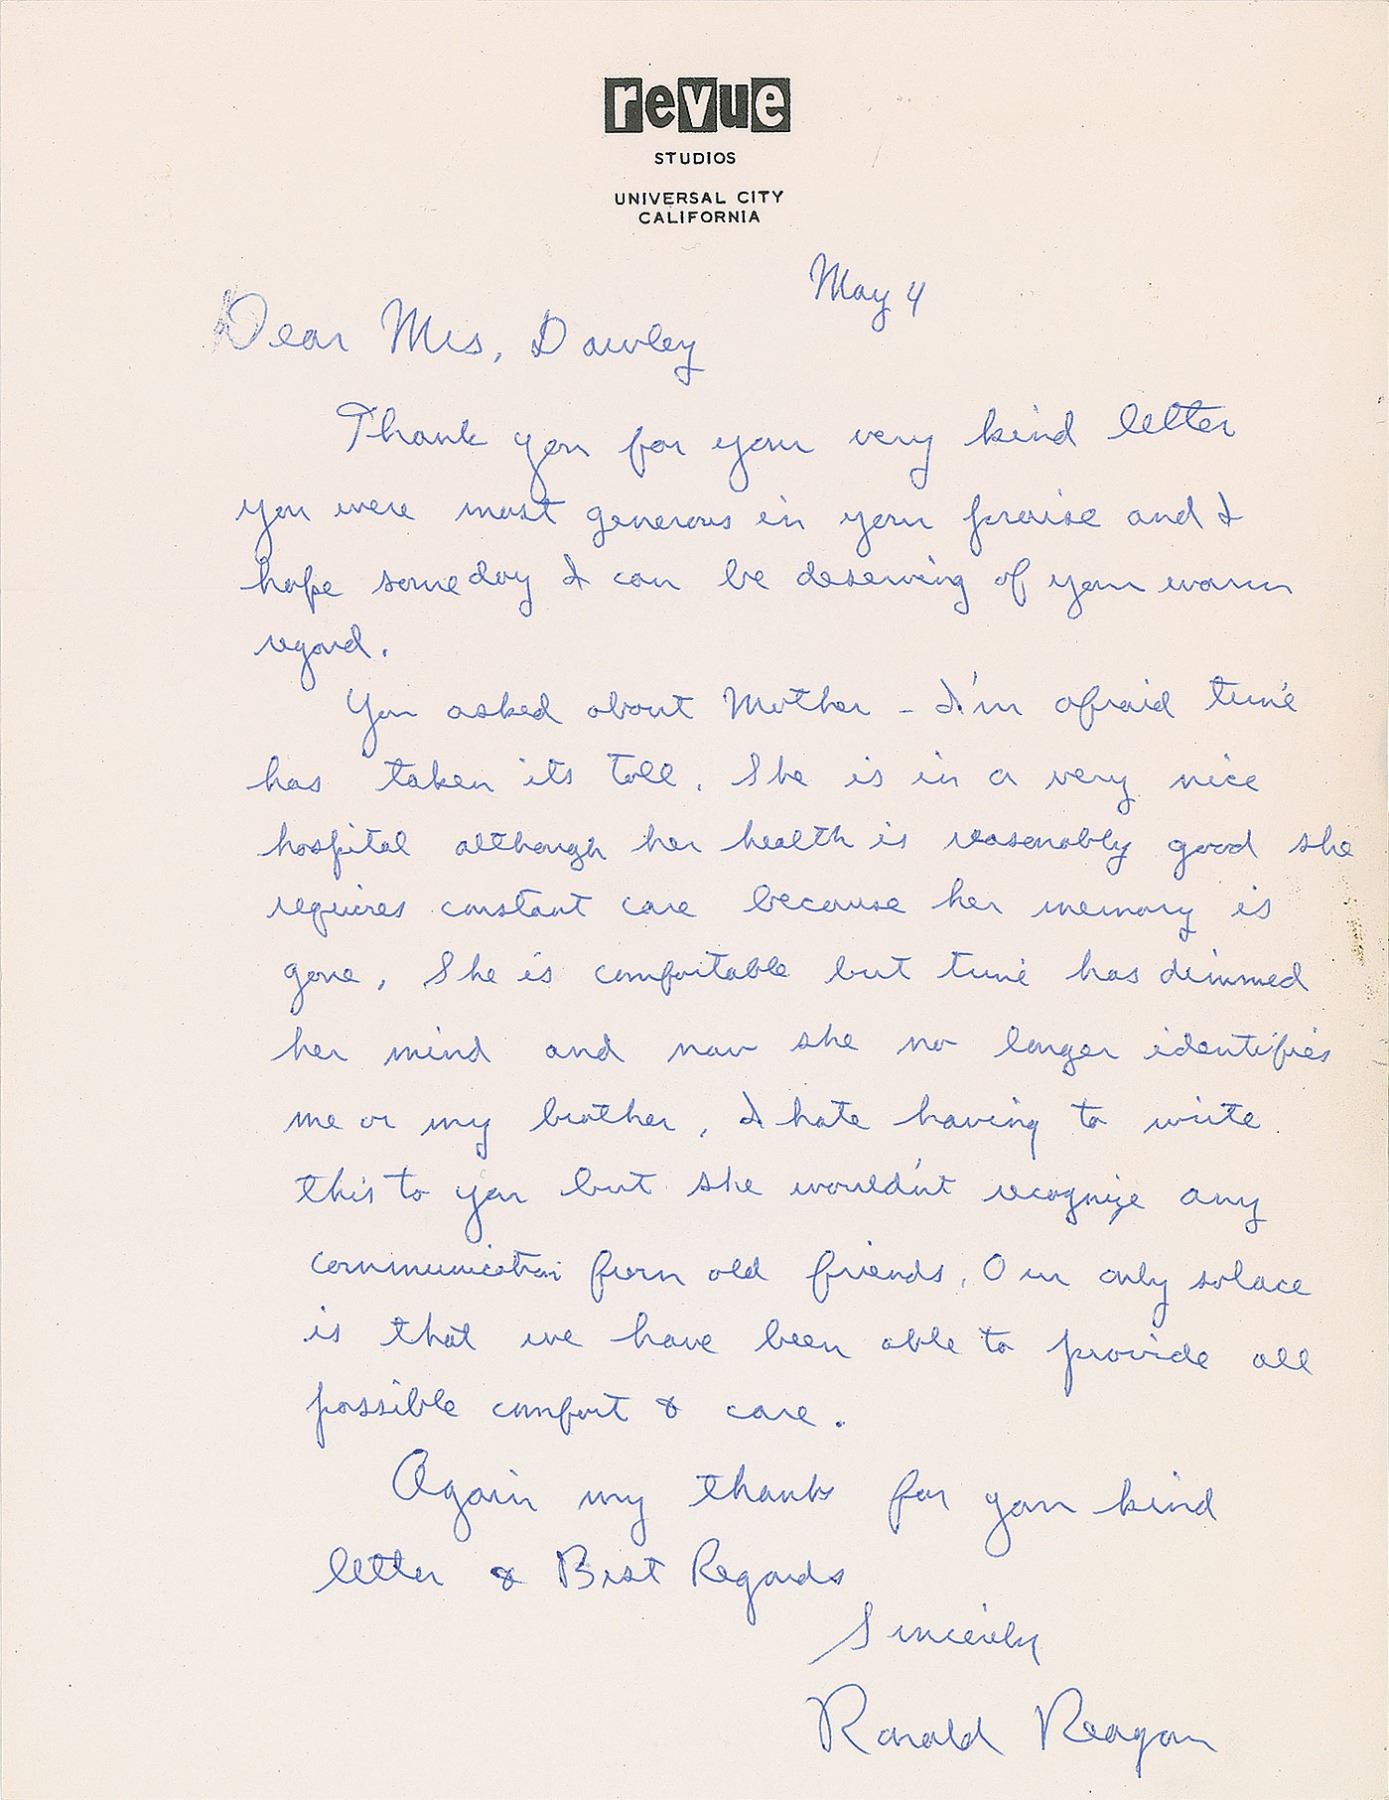 revue
STUDIOS
UNIVERSAL CITY
CALIFORNIA
May 4
Dear Mrs. Dawley
Thank you for your very kind letter
you were most generous in your praise and I
hope someday I can be deserving of your warm
regard.
You asked about Mother – I'm afraid time
has taken its toll. She is in a very nice
hospital although her health is reasonably good she
requires constant care because her memory is
gone. She is comfortable but time has dimmed
her mind and now she no longer identifies
me or my brother. I hate having to write
this to you but she wouldn't recognize any
communication from old friends. Our only solace
is that we have been able to provide all
possible comfort & care.
Again my thanks for your kind
letter & Best Regards
Sincerely
Ronald Reagan